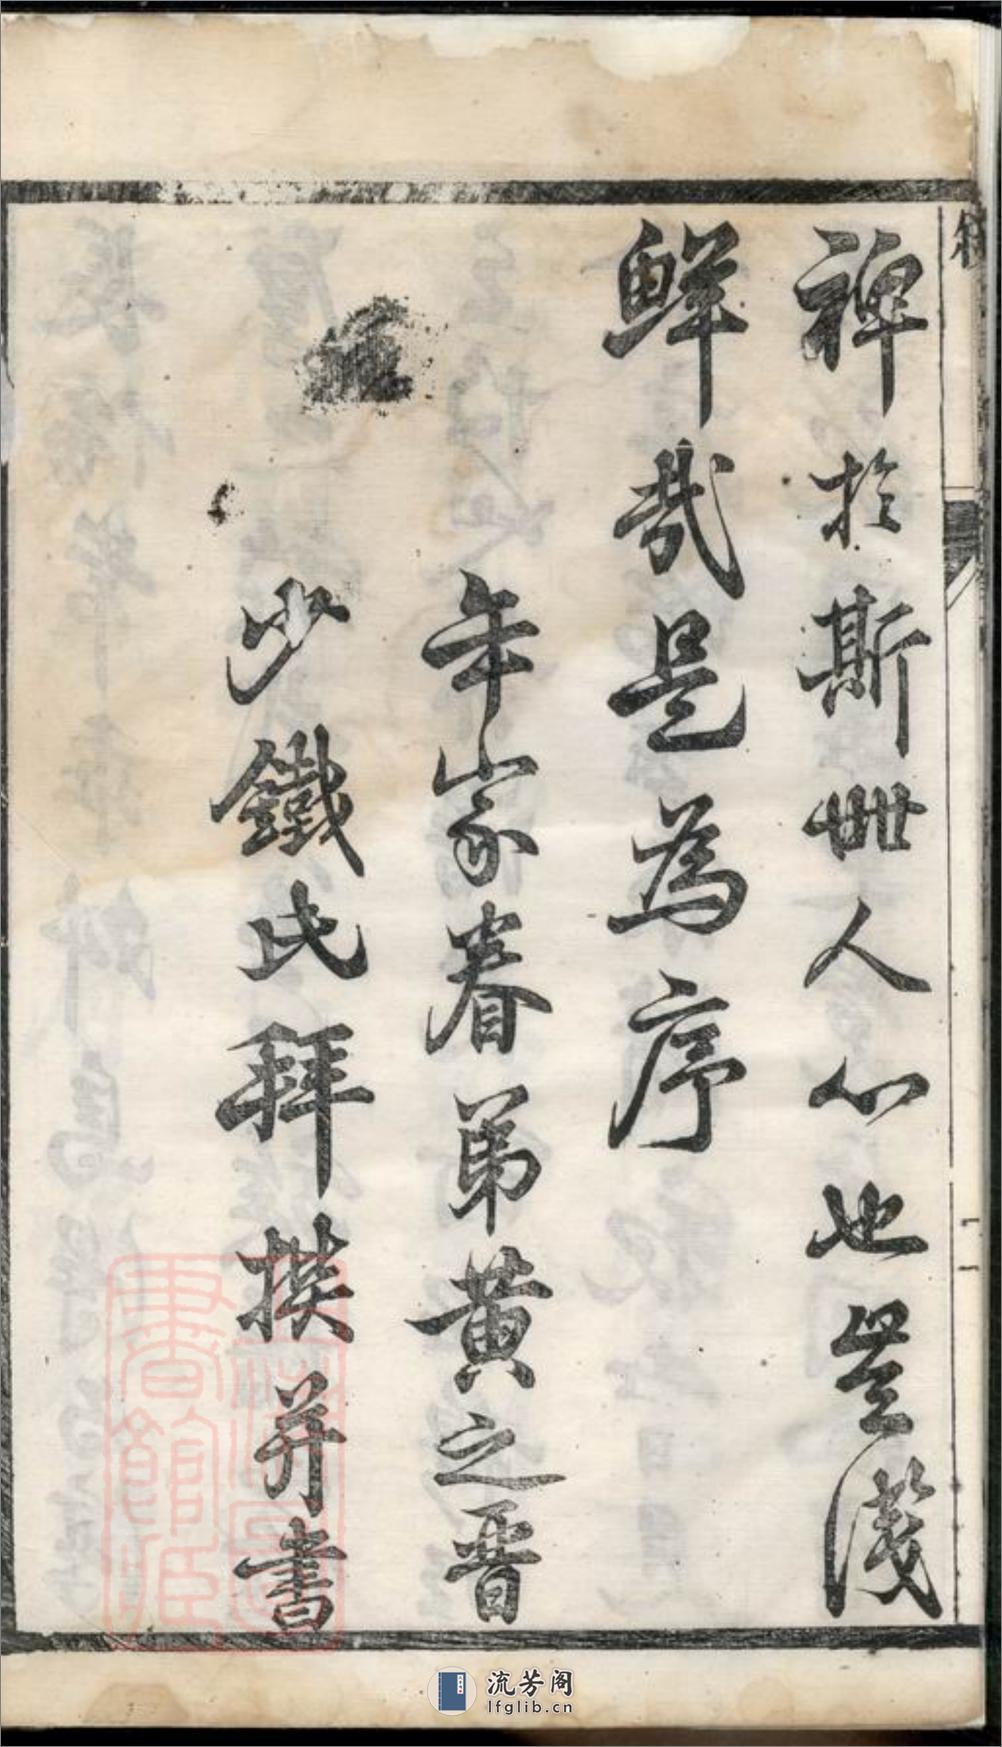 裨於斯世人心也豈淺
鮮哉是為序
年家眷弟黃之晉
少鐵氏拜撰并書
流芳阁
lfglib.cn